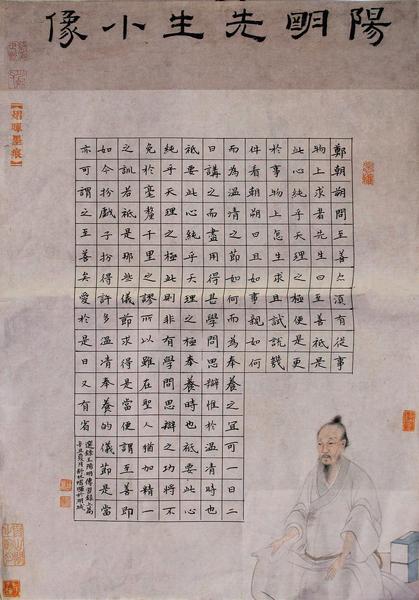 陽明先生小像
鄭朝朔問至善亦須有從事
物上求者先生曰至善祇是
此心純乎天理之極便是更
於事物上怎生求且試說幾
件看朝朔曰且如事親如何
而為溫清之節如何而為奉養之宜可一日二
日講之而盡用得甚學問思辯惟於溫清時也
祇要此心純乎天理之極奉養時也祇要此心
純乎天理之極此則非有學問思辯之功將不
免於毫釐千里之謬所以雖在聖人猶加精一
之訓若祇是那些儀節求得是當便謂至善即
如今扮戲子扮得許多溫清奉養的儀節是當
亦可謂之至善矣愛於是日又有省
選錄王陽明傳習錄上篇
辛丑夏月
墨痕